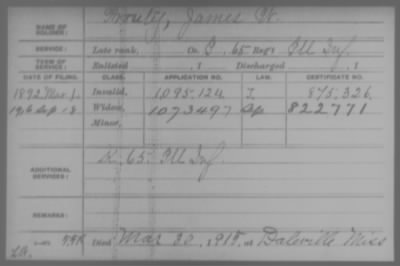 NAME OF SOLDIER: Prouty, James W.
SERVICE: Late rank, Co. C, 65 Reg't Ill Inf.
TERM OF SERVICE: Enlisted , 1 Discharged , 1
DATE OF FILING. CLASS. APPLICATION NO. LAW. CERTIFICATE NO.
1892 Mar 1. Invalid, 1095.124 J. 875.326
1916 Sep 18 Widow, 1073497 822771
Minor,
ADDITIONAL SERVICES: K. 65 Ill Inf
REMARKS:
Died Mar 30, 1915, at Daleville Miss